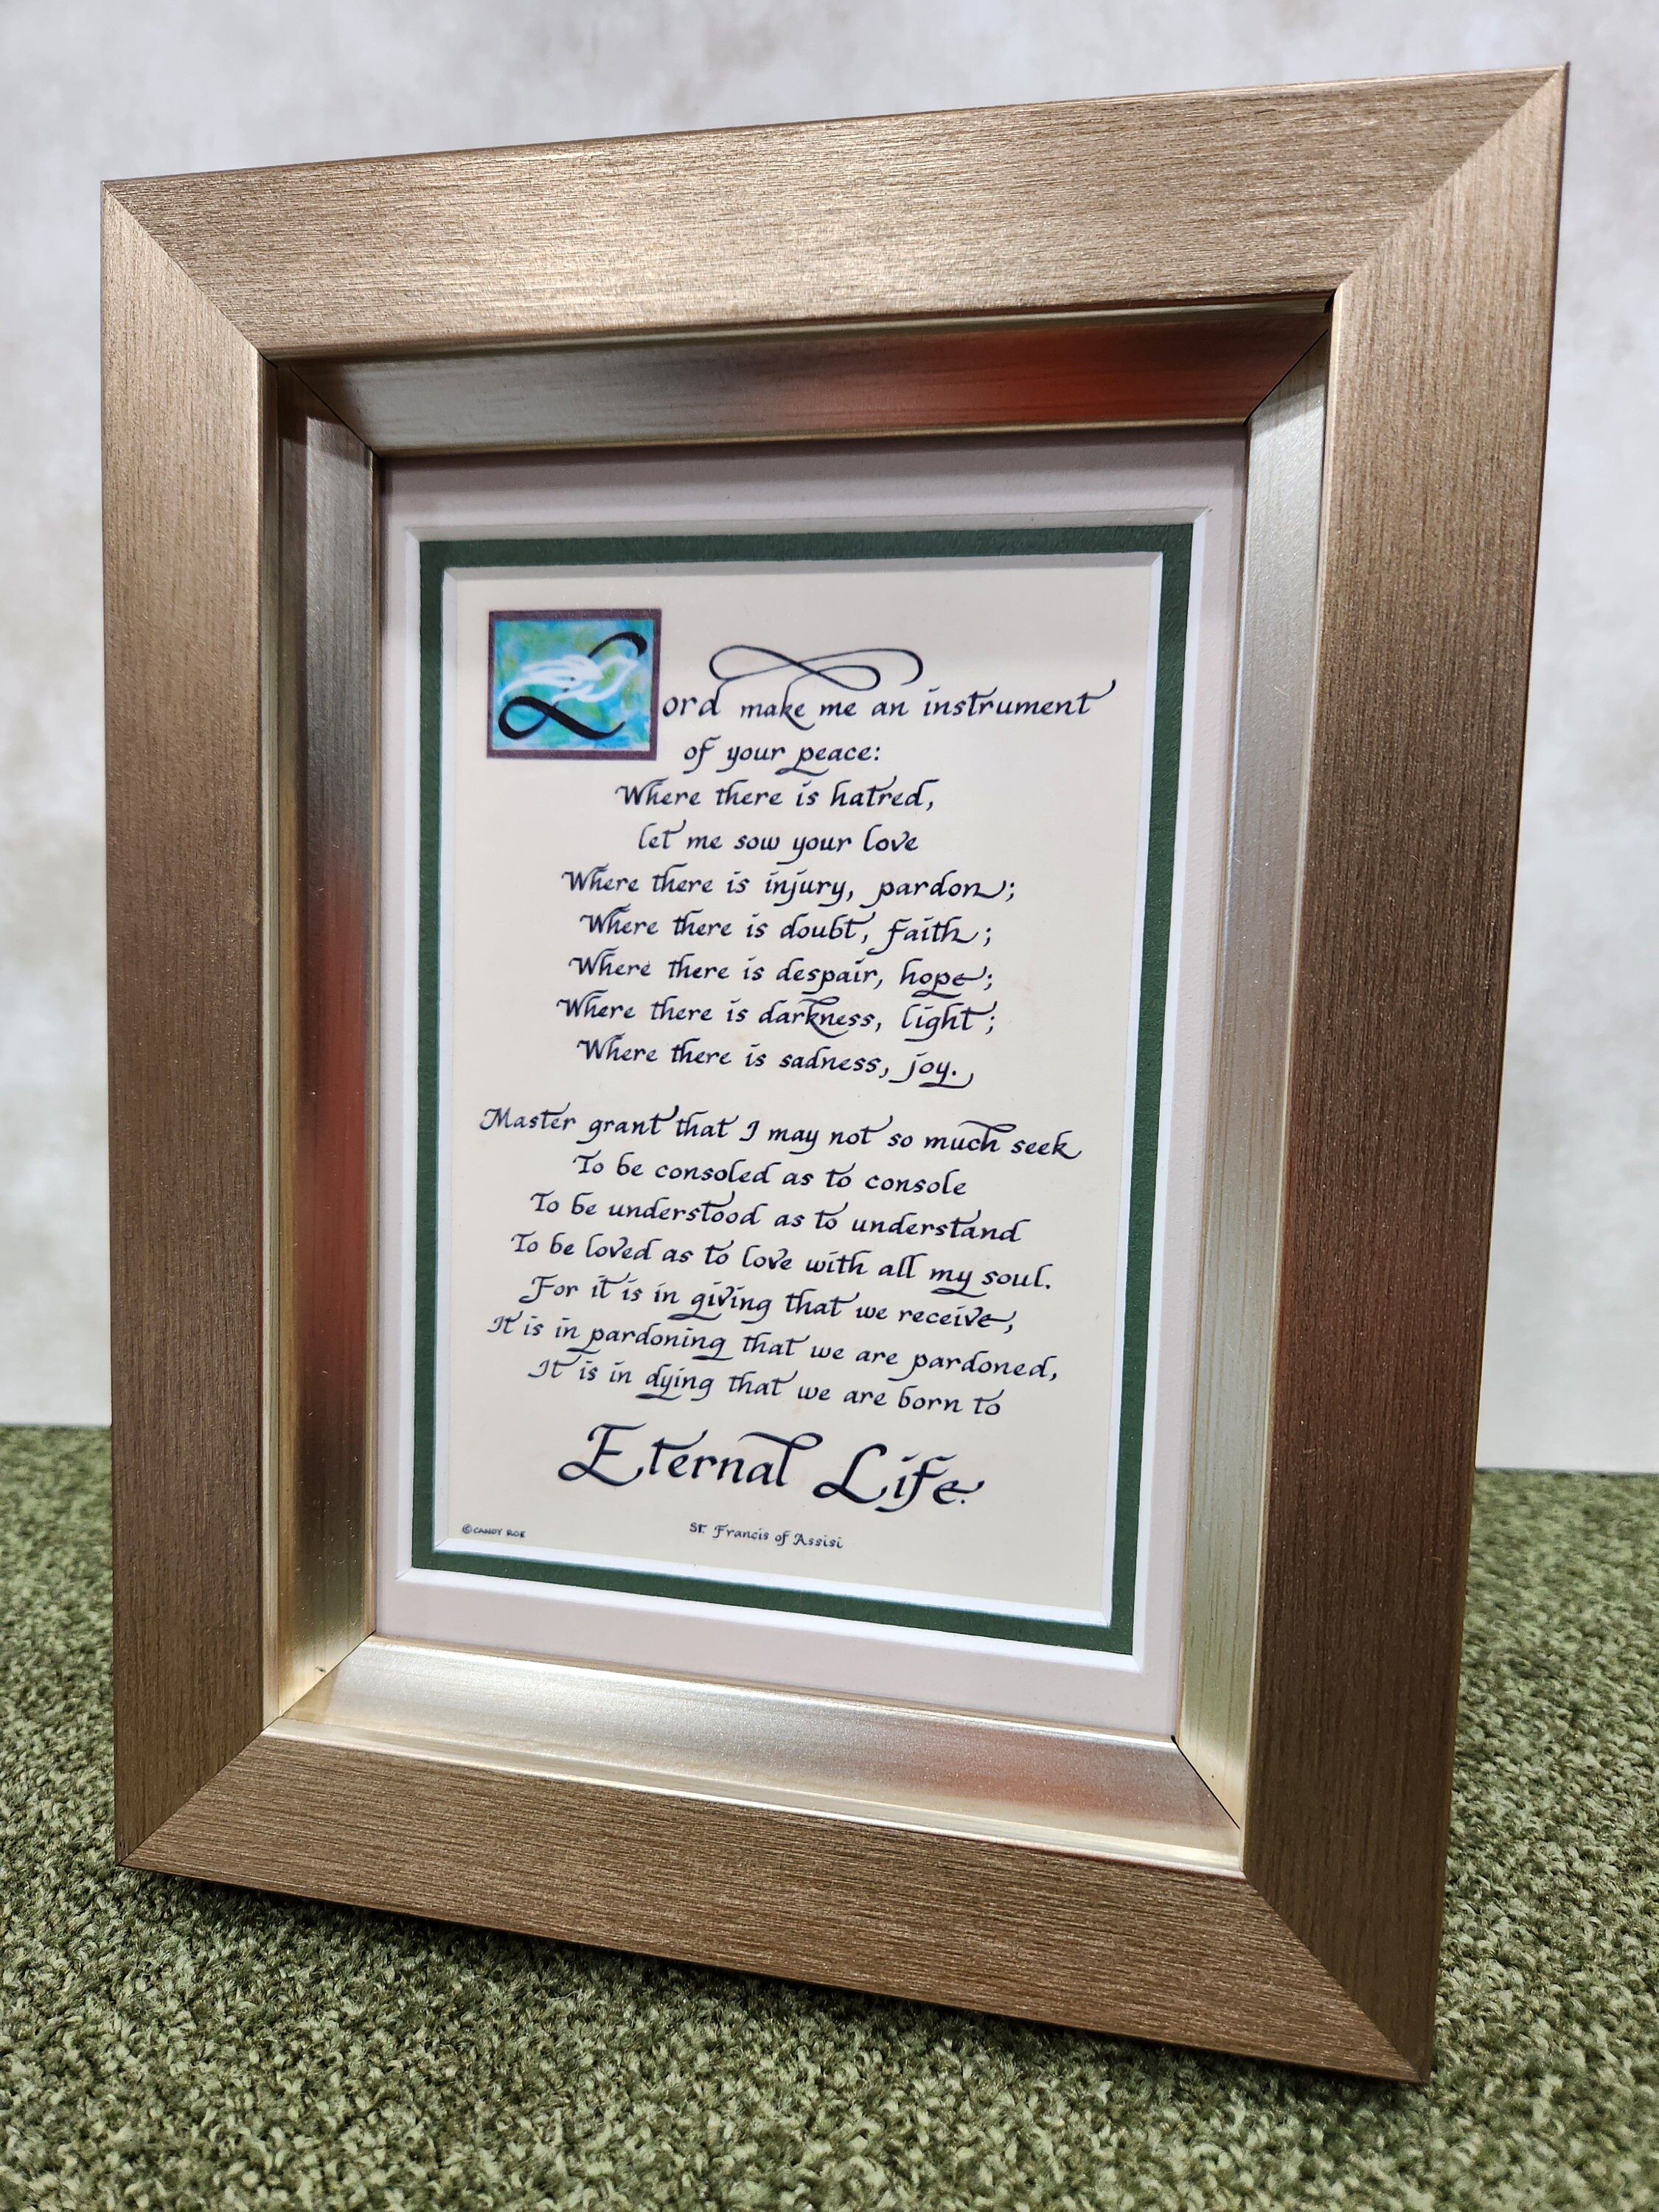 Lord make me an instrument
of your peace:
Where there is hatred,
let me sow your love
Where there is injury, pardon;
Where there is doubt, faith;
Where there is despair, hope;
Where there is darkness, light;
Where there is sadness, joy.
Master grant that I may not so much seek
To be consoled as to console
To be understood as to understand
To be loved as to love with all my soul.
For it is in giving that we receive,
It is in pardoning that we are pardoned,
It is in dying that we are born to
Eternal Life.
St. Francis of Assisi
©CANDY ROE